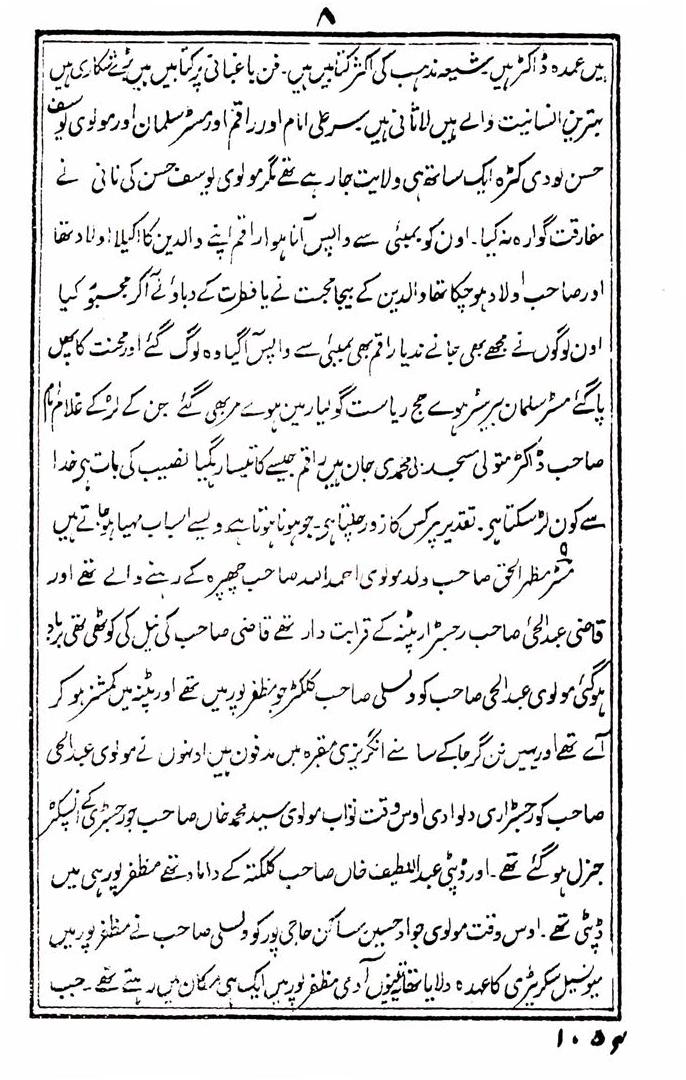 ۸
ہیں عمدہ ڈاکٹر ہیں شیعہ مذہب کی اکثر کتابیں ہیں۔ فن باغبانی پر کتابیں ہیں بڑے شکاری ہیں
بہترین انسانیت والے ہیں لاثانی ہیں سر علی امام اور راقم اور مسٹر سلمان اور مولوی یوسف
حسن لودی کٹرہ ایک ساتھ ہی ولایت جا رہے تھے مگر مولوی یوسف حسن کی نانی نے
مفارقت گوارہ نہ کیا۔ اون کو بمبئی سے واپس آنا ہوا راقم اپنے والدین کا اکیلا اولاد تھا
اور صاحب اولاد ہو چکا تھا والدین کے بیجا محبت نے یا فطرت کے دباؤ نے آکر مجبور کیا
اون لوگوں نے مجھے بھی جانے ندیا راقم بھی بمبئی سے واپس آگیا وہ لوگ گئے اور محنت کا پھل
پا گئے مسٹر سلمان بیرسٹر ہوے جج ریاست گولیار مین ہوے مر بھی گئے جن کے لڑکے غلام امام
صاحب ڈاکٹر متولی مسجد بی محمدی جان ہیں راقم جیسے کا تیسا رہ گیا نصیب کی بات ہی خدا
سے کون لڑ سکتا ہی۔ تقدیر پر کس کا زور چلتا ہی۔ جو ہونا ہوتا ہے ویسے اسباب مہیا ہو جاتے ہیں
۹ مسٹر مظہر الحق صاحب ولد مولوی احمد اللہ صاحب چھپرہ کے رہنے والے تھے اور
قاضی عبد الحئ صاحب رجسٹرار پٹنہ کے قرابت دار تھے قاضی صاحب کی نیل کی کوٹھی تھی برباد
ہو گئی مولوی عبد الحئ صاحب کو ولسلی صاحب کلکٹر جو مظفر پور میں تھے اور پٹنہ میں کمشنر ہو کر
آے تھے اور یہیں بن گرجا کے سامنے انگریزی مقبرہ میں مدفون ہیں اونہوں نے مولوی عبد الحئ
صاحب کو رجسٹراری دلوا دی اوس وقت نواب مولوی سید محمد خاں صاحب جو رجسٹری کے انسپکٹر
جنرل ہو گئے تھے۔ اور ڈپٹی عبد اللطیف خاں صاحب کلکتہ کے داماد تھے مظفر پور ہی میں
ڈپٹی تھے۔ اوس وقت مولوی جواد حسین ساکن حاجی پور کو ولسلی صاحب نے مظفر پور میں
میونسپل سکریٹری کا عہدہ دلایا تھا تینوں آدمی مظفر پور میں ایک ہی مکان میں رہتے تھے۔ جب